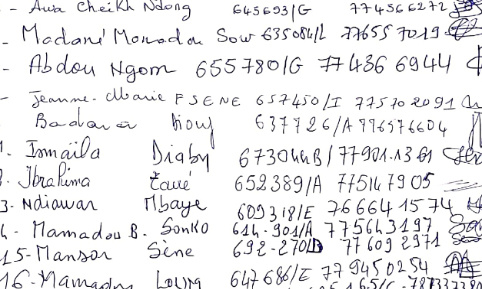 - Awa Cheikh Ndong 645693/G 774566272
- Madané Mamadou Sow 635084/L 77655 7019
- Abdou Ngom 655780/G 77436 6944
- Jeanne-Marie F SENE 657450/I 77570 2091
Badara 637726/A 776576604
1. Ismaïla Diaby 673044B/ 77901.13 61
2. Ibrahima 652389/A 775147905
3- Ndiawar Mbaye 609318/E 76664 1574
4- Mamadou B. Sonko 614-901/A 775643197
15-Mansor Sène 692-270/D 77 609 2971
16-Mamadou 647686/E 77 9450254